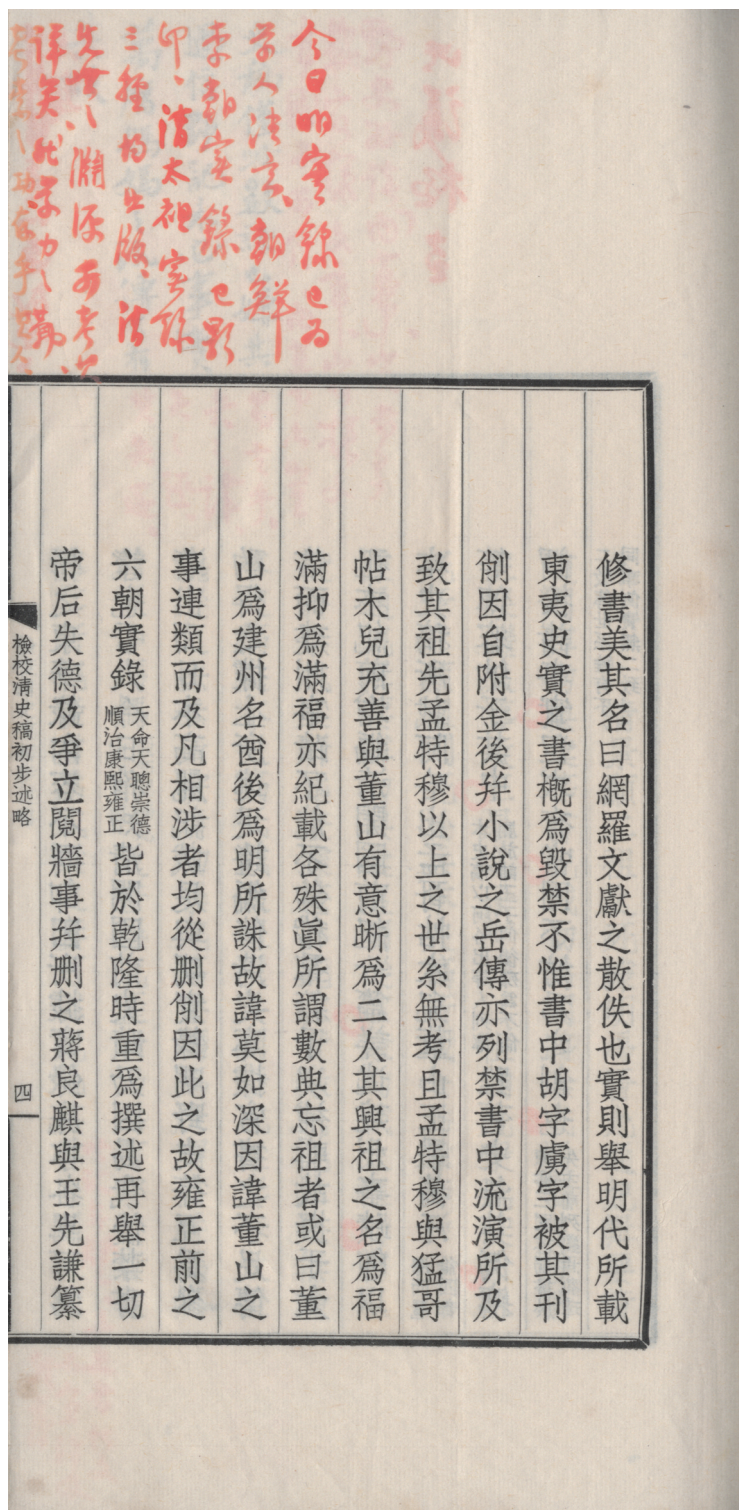 今日明實錄已為
學人法言、朝鮮
李朝實錄已影
印、清太祖實錄
三種均出版、清
先世之淵源可考
詳矣
修書美其名曰網羅文獻之散佚也實則舉明代所載
東夷史實之書槪爲毀禁不惟書中胡字虜字被其刊
削因自附金後幷小說之岳傳亦列禁書中流演所及
致其祖先孟特穆以上之世系無考且孟特穆與猛哥
帖木兒充善與董山有意晰爲二人其興祖之名爲福
滿抑爲滿福亦紀載各殊眞所謂數典忘祖者或曰董
山爲建州名酋後爲明所誅故諱莫如深因諱董山之
事連類而及凡相涉者均從刪削因此之故雍正前之
六朝實錄天命天聰崇德順治康熙雍正皆於乾隆時重爲撰述再舉一切
帝后失德及爭立鬩牆事幷刪之蔣良麒與王先謙纂
檢校淸史稿初步述略
四